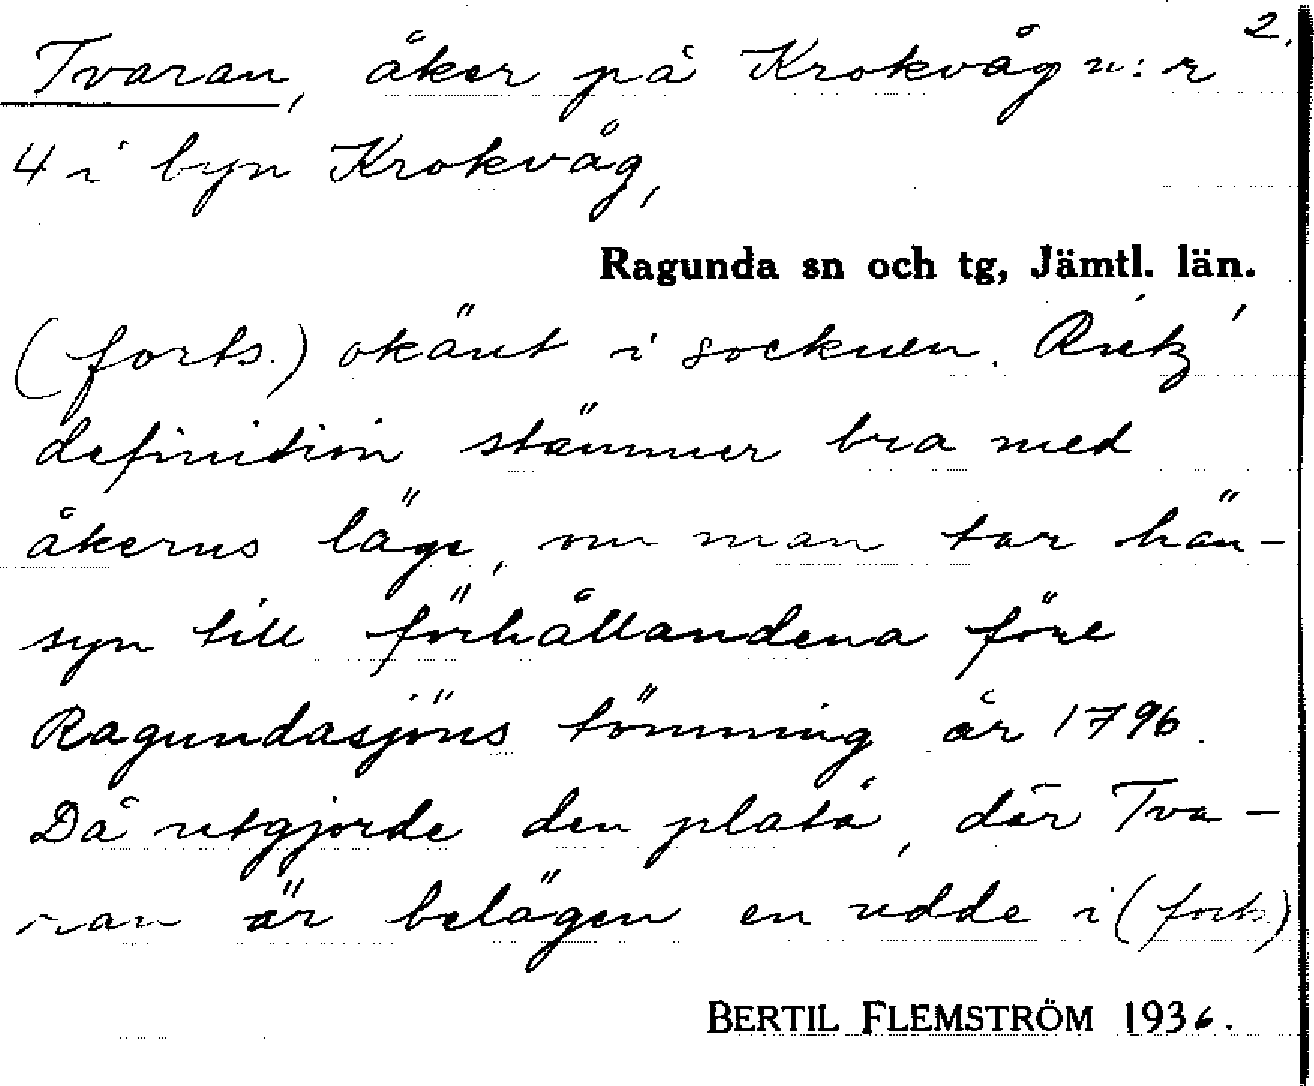 2.
Tvaran, åker på Krokvåg n:r
4 i byn Krokvåg,
Ragunda sn och tg, Jämtl. län.
(forts.) okänt i socknen. Rietz'
definition stämmer bra med
åkerns läge, om man tar hän-
syn till förhållandena före
Ragundasjöns tömning år 1796.
Då utgjorde den platå, där Tva-
ran är belägen en udde i (forts)
BERTIL FLEMSTRÖM 1936.